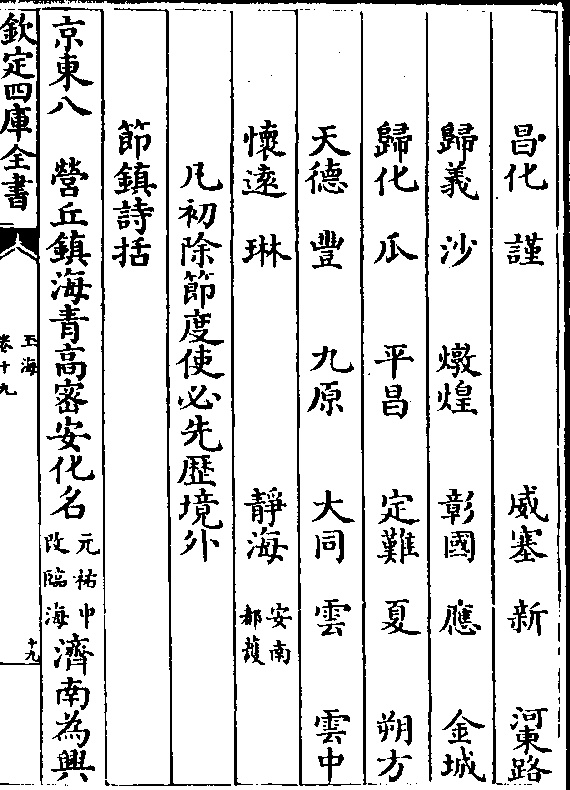 昌化 謹 威塞 新 河東路
歸義 沙 燉煌 彰國 應 金城
歸化 瓜 平昌 定難 夏 朔方
天德 豐 九原 大同 雲 雲中
懷遠 琳 靜海 安南都護
凡初除節度使必先歷境外
節鎮詩括
京東八 營丘鎮海青高密安化名 元祐中改臨海 濟南為興
欽定四庫全書 玉海 卷十九 十九